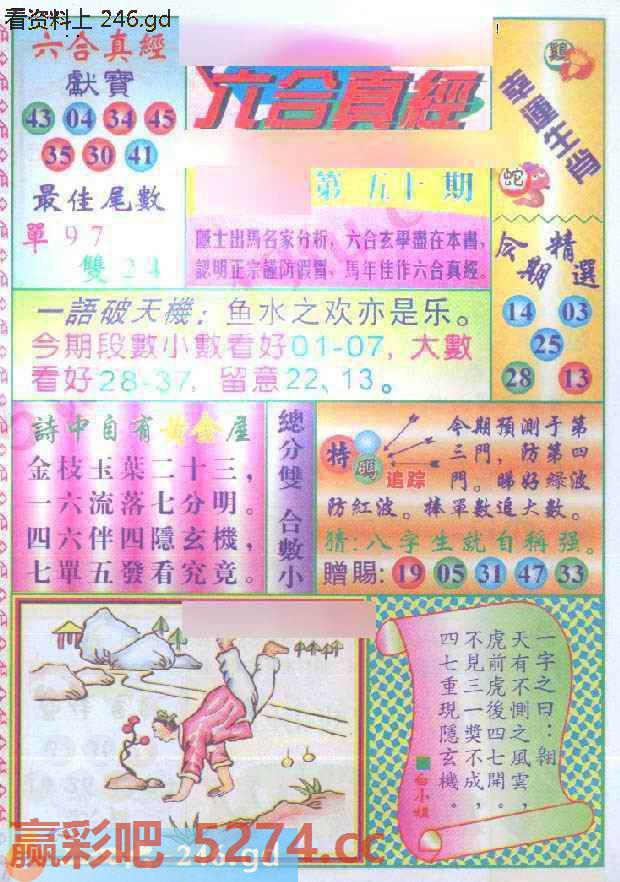 看资料上 246.gd
六合真經
獻寶
43 04 34 45
35 30 41
最佳尾數
單97
雙24
六合真經
第五十期
隱士出馬名家分析，六合玄學盡在本書，
認明正宗謹防假冒，馬年佳作六合真經。
幸運生肖
蛇
今期精選
14 03
25
28 13
一語破天機：鱼水之欢亦是乐。
今期段數小數看好01-07，大數
看好28-37，留意22、13。
詩中自有黃金屋
金枝玉葉二十三，
一六流落七分明。
四六伴四隱玄機，
七單五發看究竟。
總分雙 合數小
特碼追踪
今期預測于第
三門，防第四
門。睇好綠波
防紅波。棒單數追大數。
猜：八字生就自稱强。
贈賜：19 05 31 47 33
一字之曰：翱
天有不惻之風雲，
虎前虎後四七開。
不見三一獎不成，
四七重現隱玄機。
白小姐
赢彩吧 5274.cc
246.gd